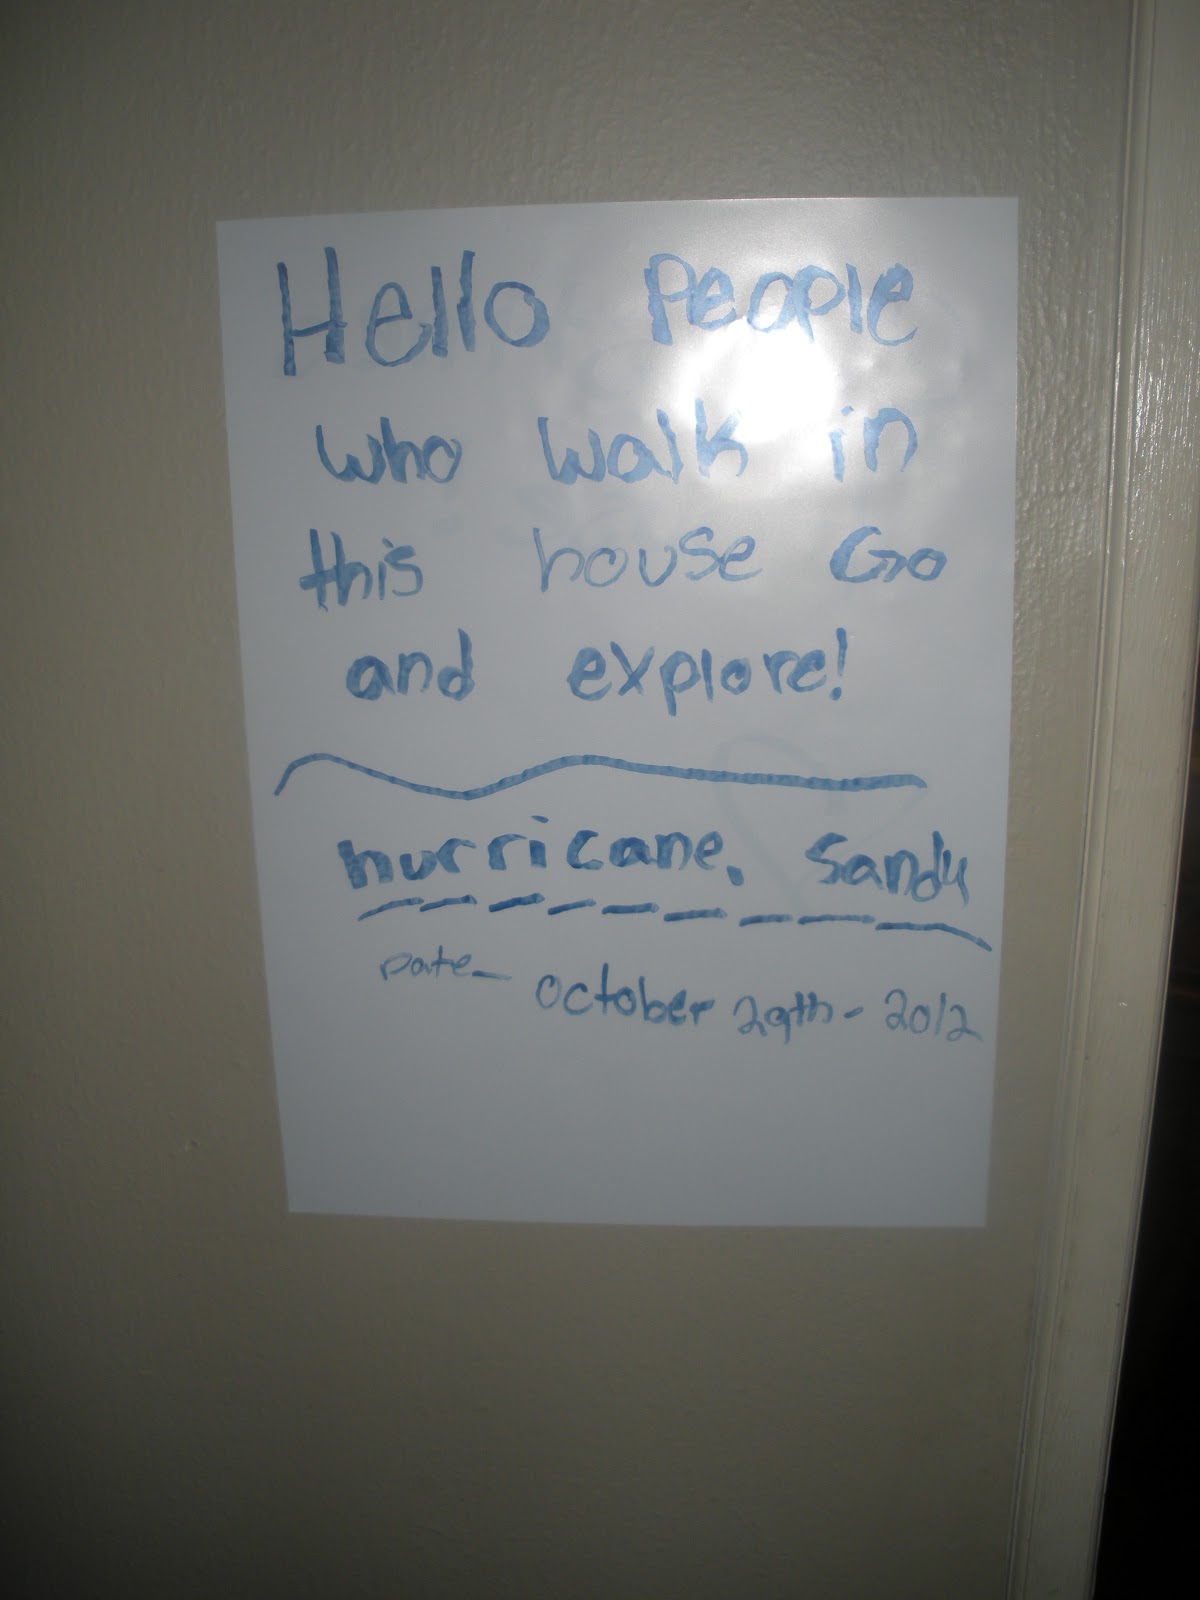 Hello People
who walk in
this house Go
and explore!
hurricane. Sandy
Date- October 29th - 2012